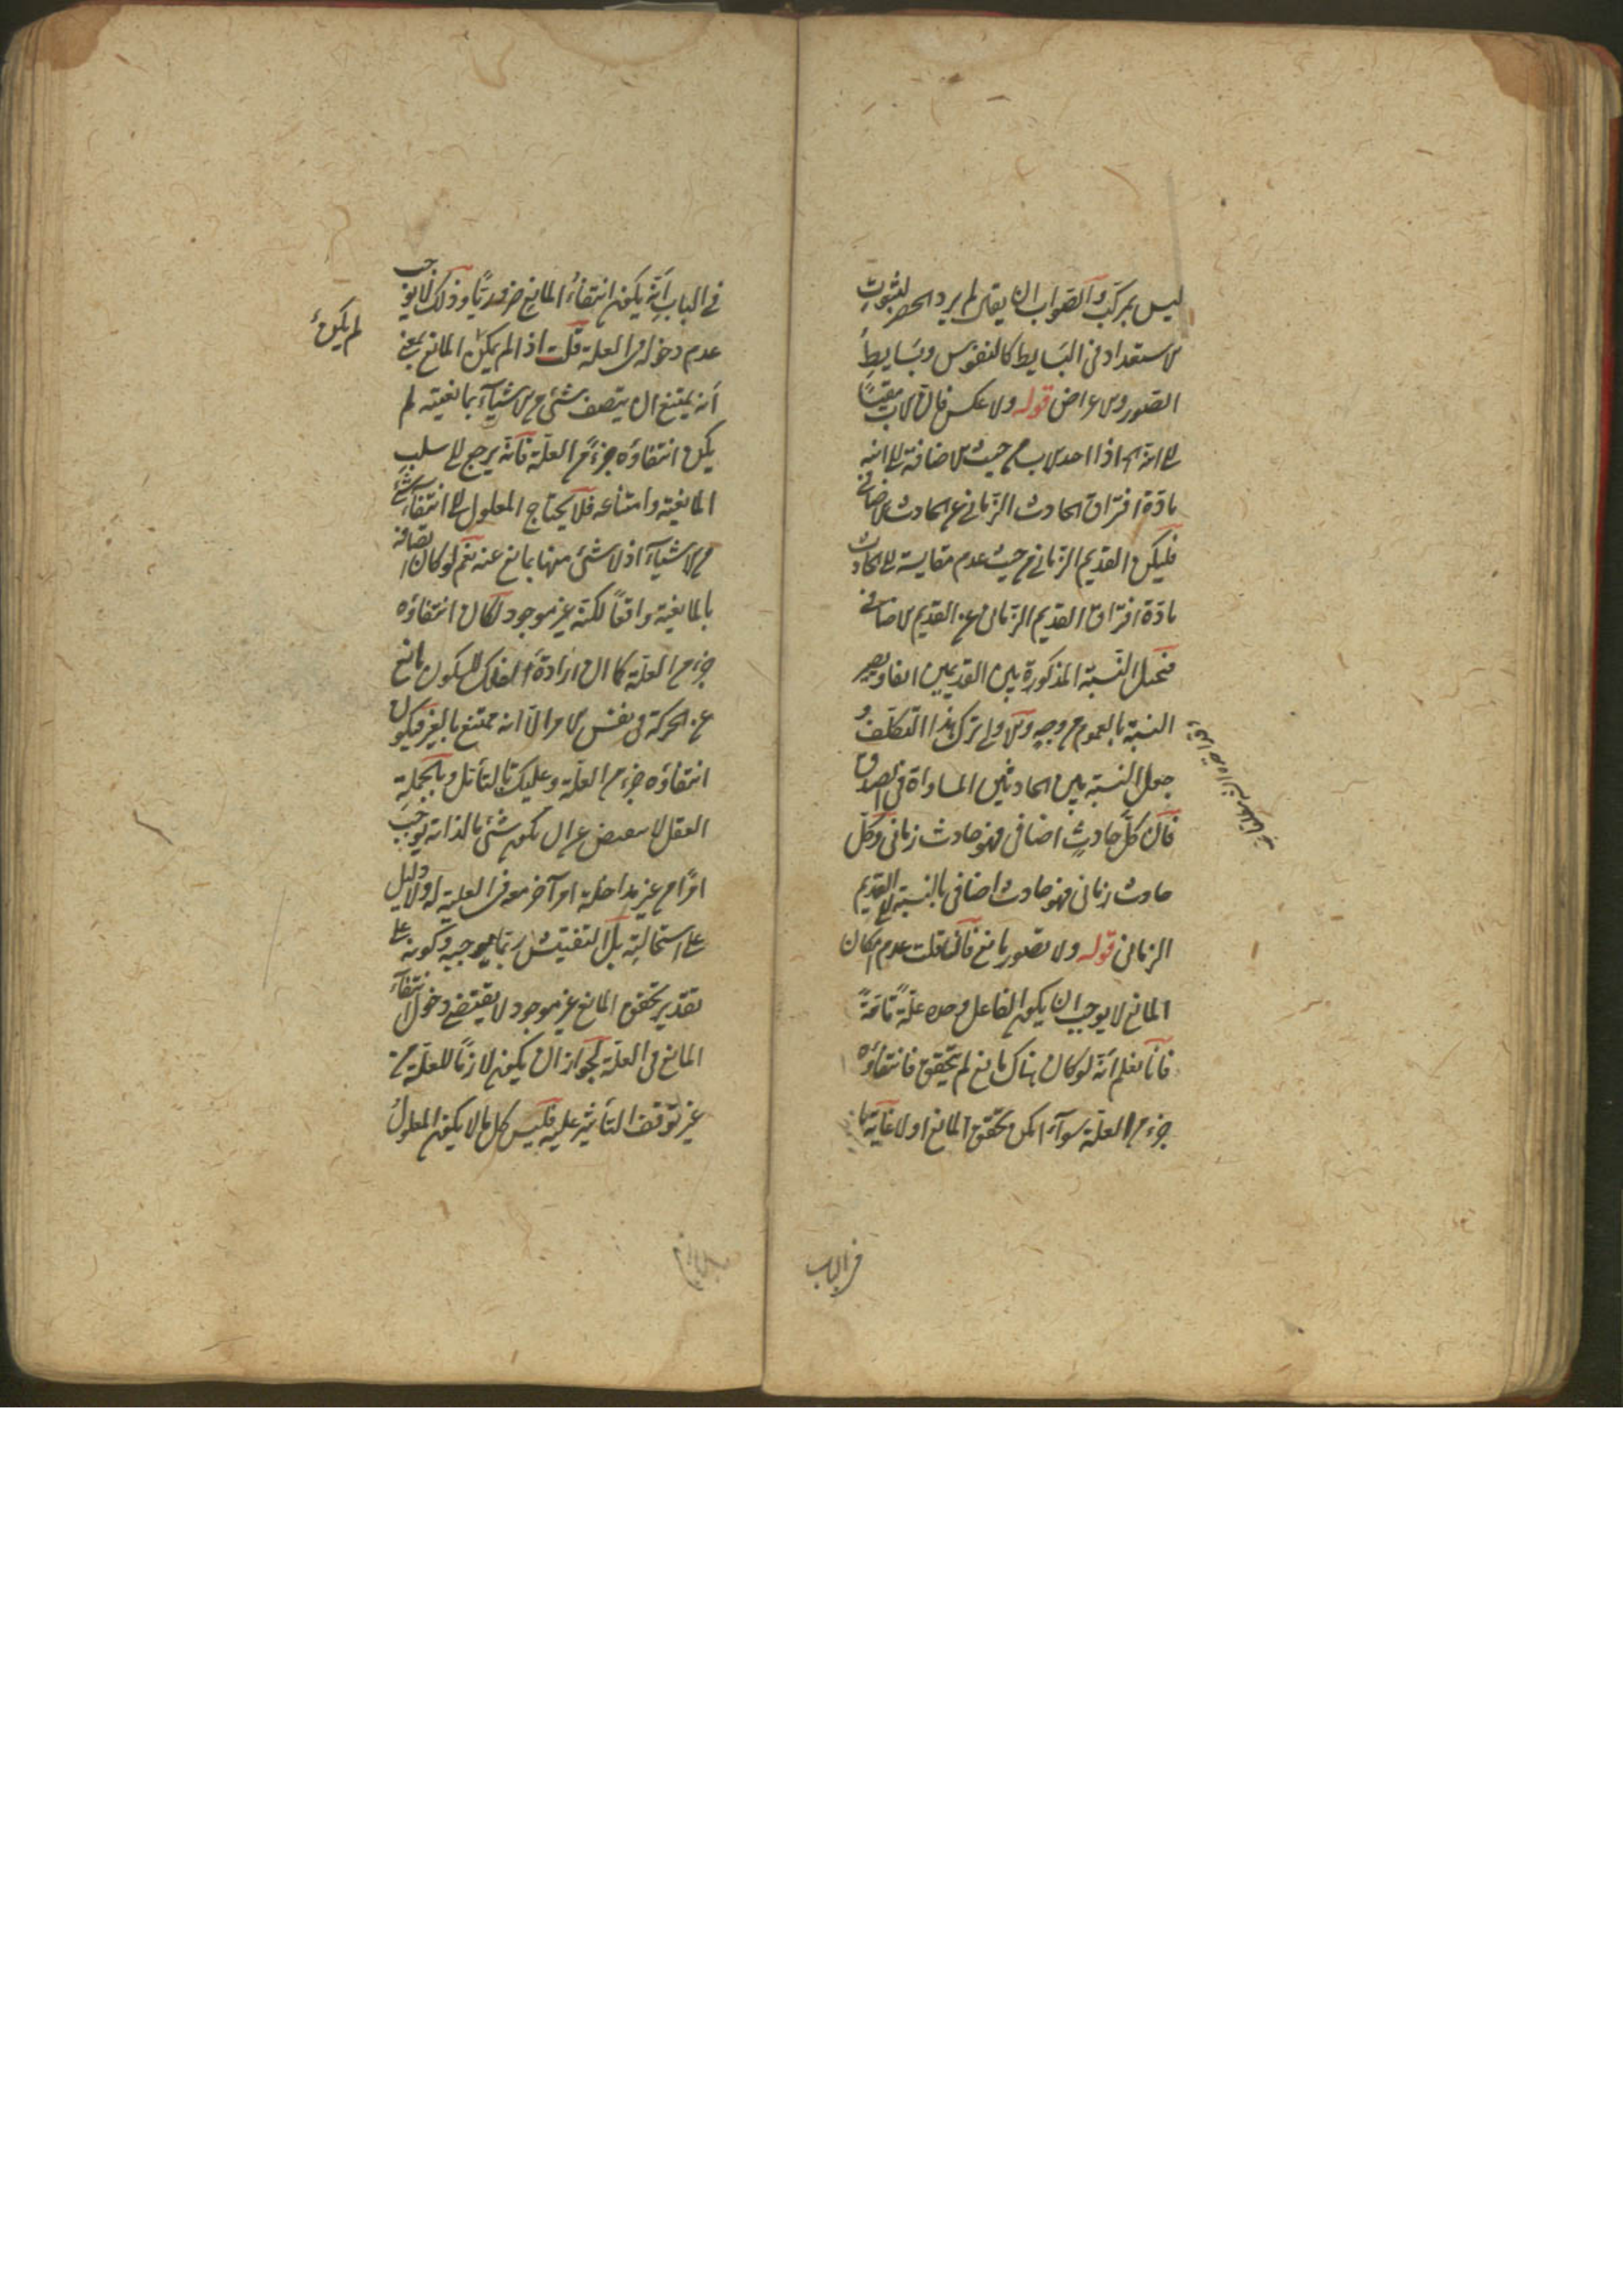 ليس بمركب والصواب ان يقال لم يرد الحصر لثبوت
الاستعداد في البسايط كالنفوس وبسايط
الصور والاعراض قوله ولا عكس فان الاب مقيسًا
الى ابنه اذا احد لاب من حيث الاضافة الى ابنه
مادة افتراق الحادث الزماني عن الحادث الاضافي
فليكن القديم الزماني من حيث عدم مقايسته الى الحادث
مادة افتراق القديم الزماني عن القديم الاضافي
فتحصل النسبة المذكورة بين القديمين
النسبة بالعموم من وجه والاولى ترك هذا التكلف و
جعل النسبة بين الحادثين المساواة في الصدق
فان كل حادثٍ اضافي فهو حادث زماني وكل
حادث زماني فهو حادث اضافي بالنسبة الى القديم
الزماني قوله ولا تصور مانع فان قلت عدم امكان
المانع لا يوجب ان يكون الفاعل وحده علّةً تامّةً
فانا نعلم أنه لو كان هناك مانع لم يتحقق فانتفاؤه
جزء من العلة سوآء امكن تحقق المانع او لا غاية ما
في الباب
في الباب أنه يكون انتفاء المانع ضروريًا وذلك لا يوجب
عدم دخوله في العلة قلت اذا لم يمكن المانع بمعنى
لم يكن
أنه يمتنع ان يتصف شئ من الاشيآء بمانعيته لم
يكن انتفاؤه جزءً من العلّة فانه يرجع الى سلب
المانعية وامتناعه فلا يحتاج المعلول الى انتفاء شئ
من الاشيآء اذ لا شئ منها بمانع عنه نعم لو كان اتصافه
بالمانعية واقعاً لكنه غير موجود لكان انتفاؤه
جزء من العلّة كما ان ارادة الفلك للسكون مانع
عن الحركة في نفس الامر الّا انه ممتنع بالغير فيكون
انتفاؤه جزء من العلّة وعليك بالتأمل وبالجملة
العقل لا عن ان يكون شئ بالذات يوجب
امرًا من غير مداخلة امر آخر معه في العلية له ولا دليل
على استحالته بل التفتيش ربما يوجبه وكونه على
تقدير تحقق المانع غير موجود لا يقتضي دخول انتفآء
المانع في العلّة لجواز ان يكون لازمًا للعلّة من
غير توقف التأثير عليه فليس كل ما لا يكون المعلولُ